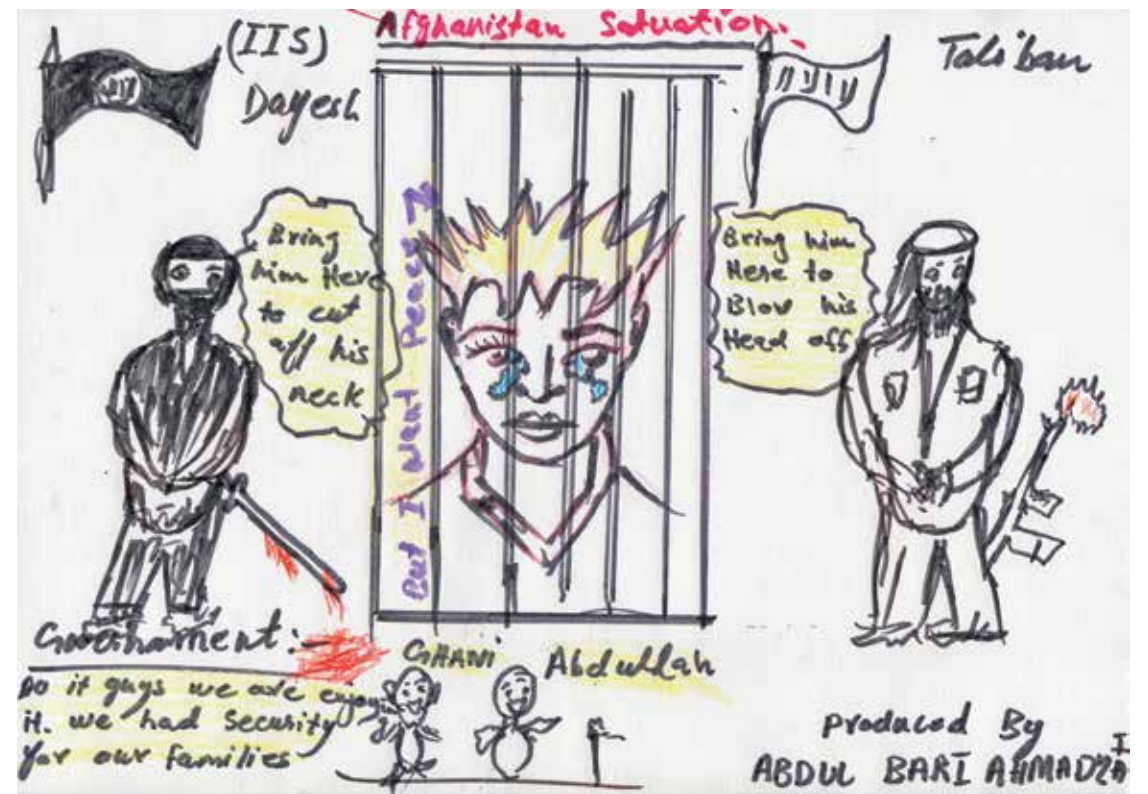 Afghanistan Satuation.
(IIS)
Dayesh
Taliban
Bring
him Here
to cut
off his
neck
But I want Peace
Bring him
Here to
Blow his
Head off
Governament:-
GHANI
Abdullah
Do it guys we are enjoying
it. we had security
for our families
produced By
ABDUL BARI AHMADZAI